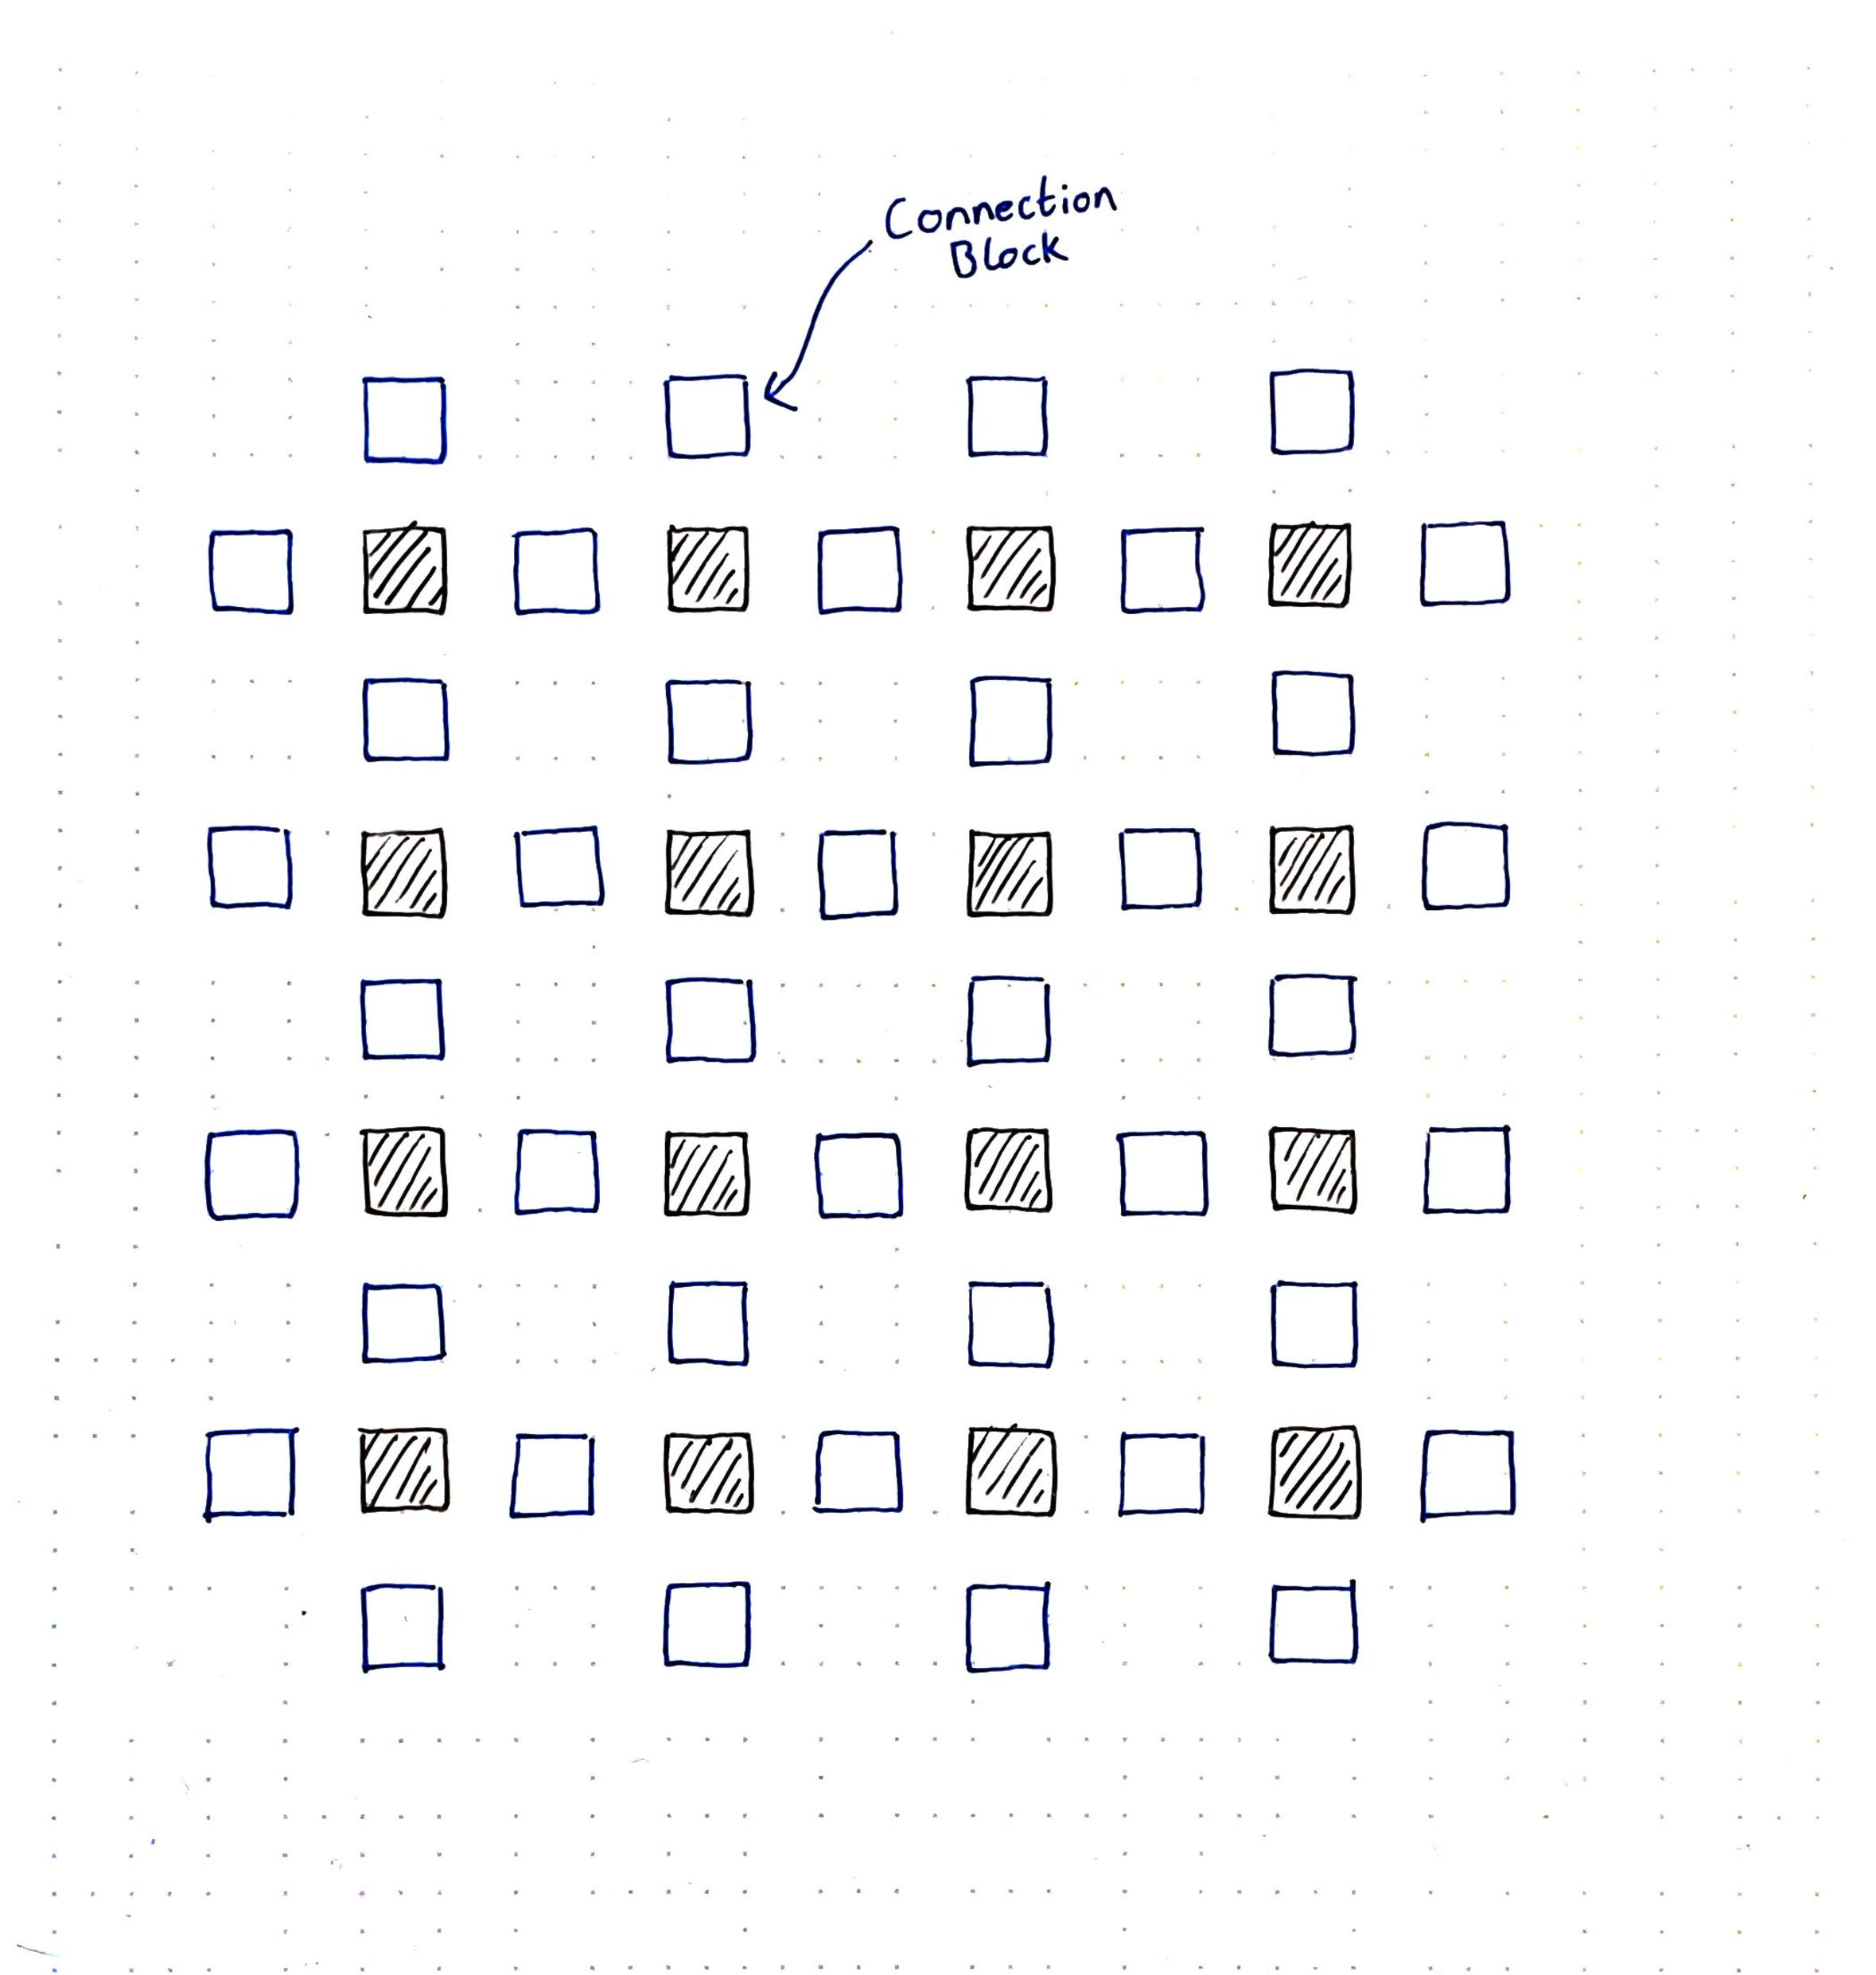 Connection
Block